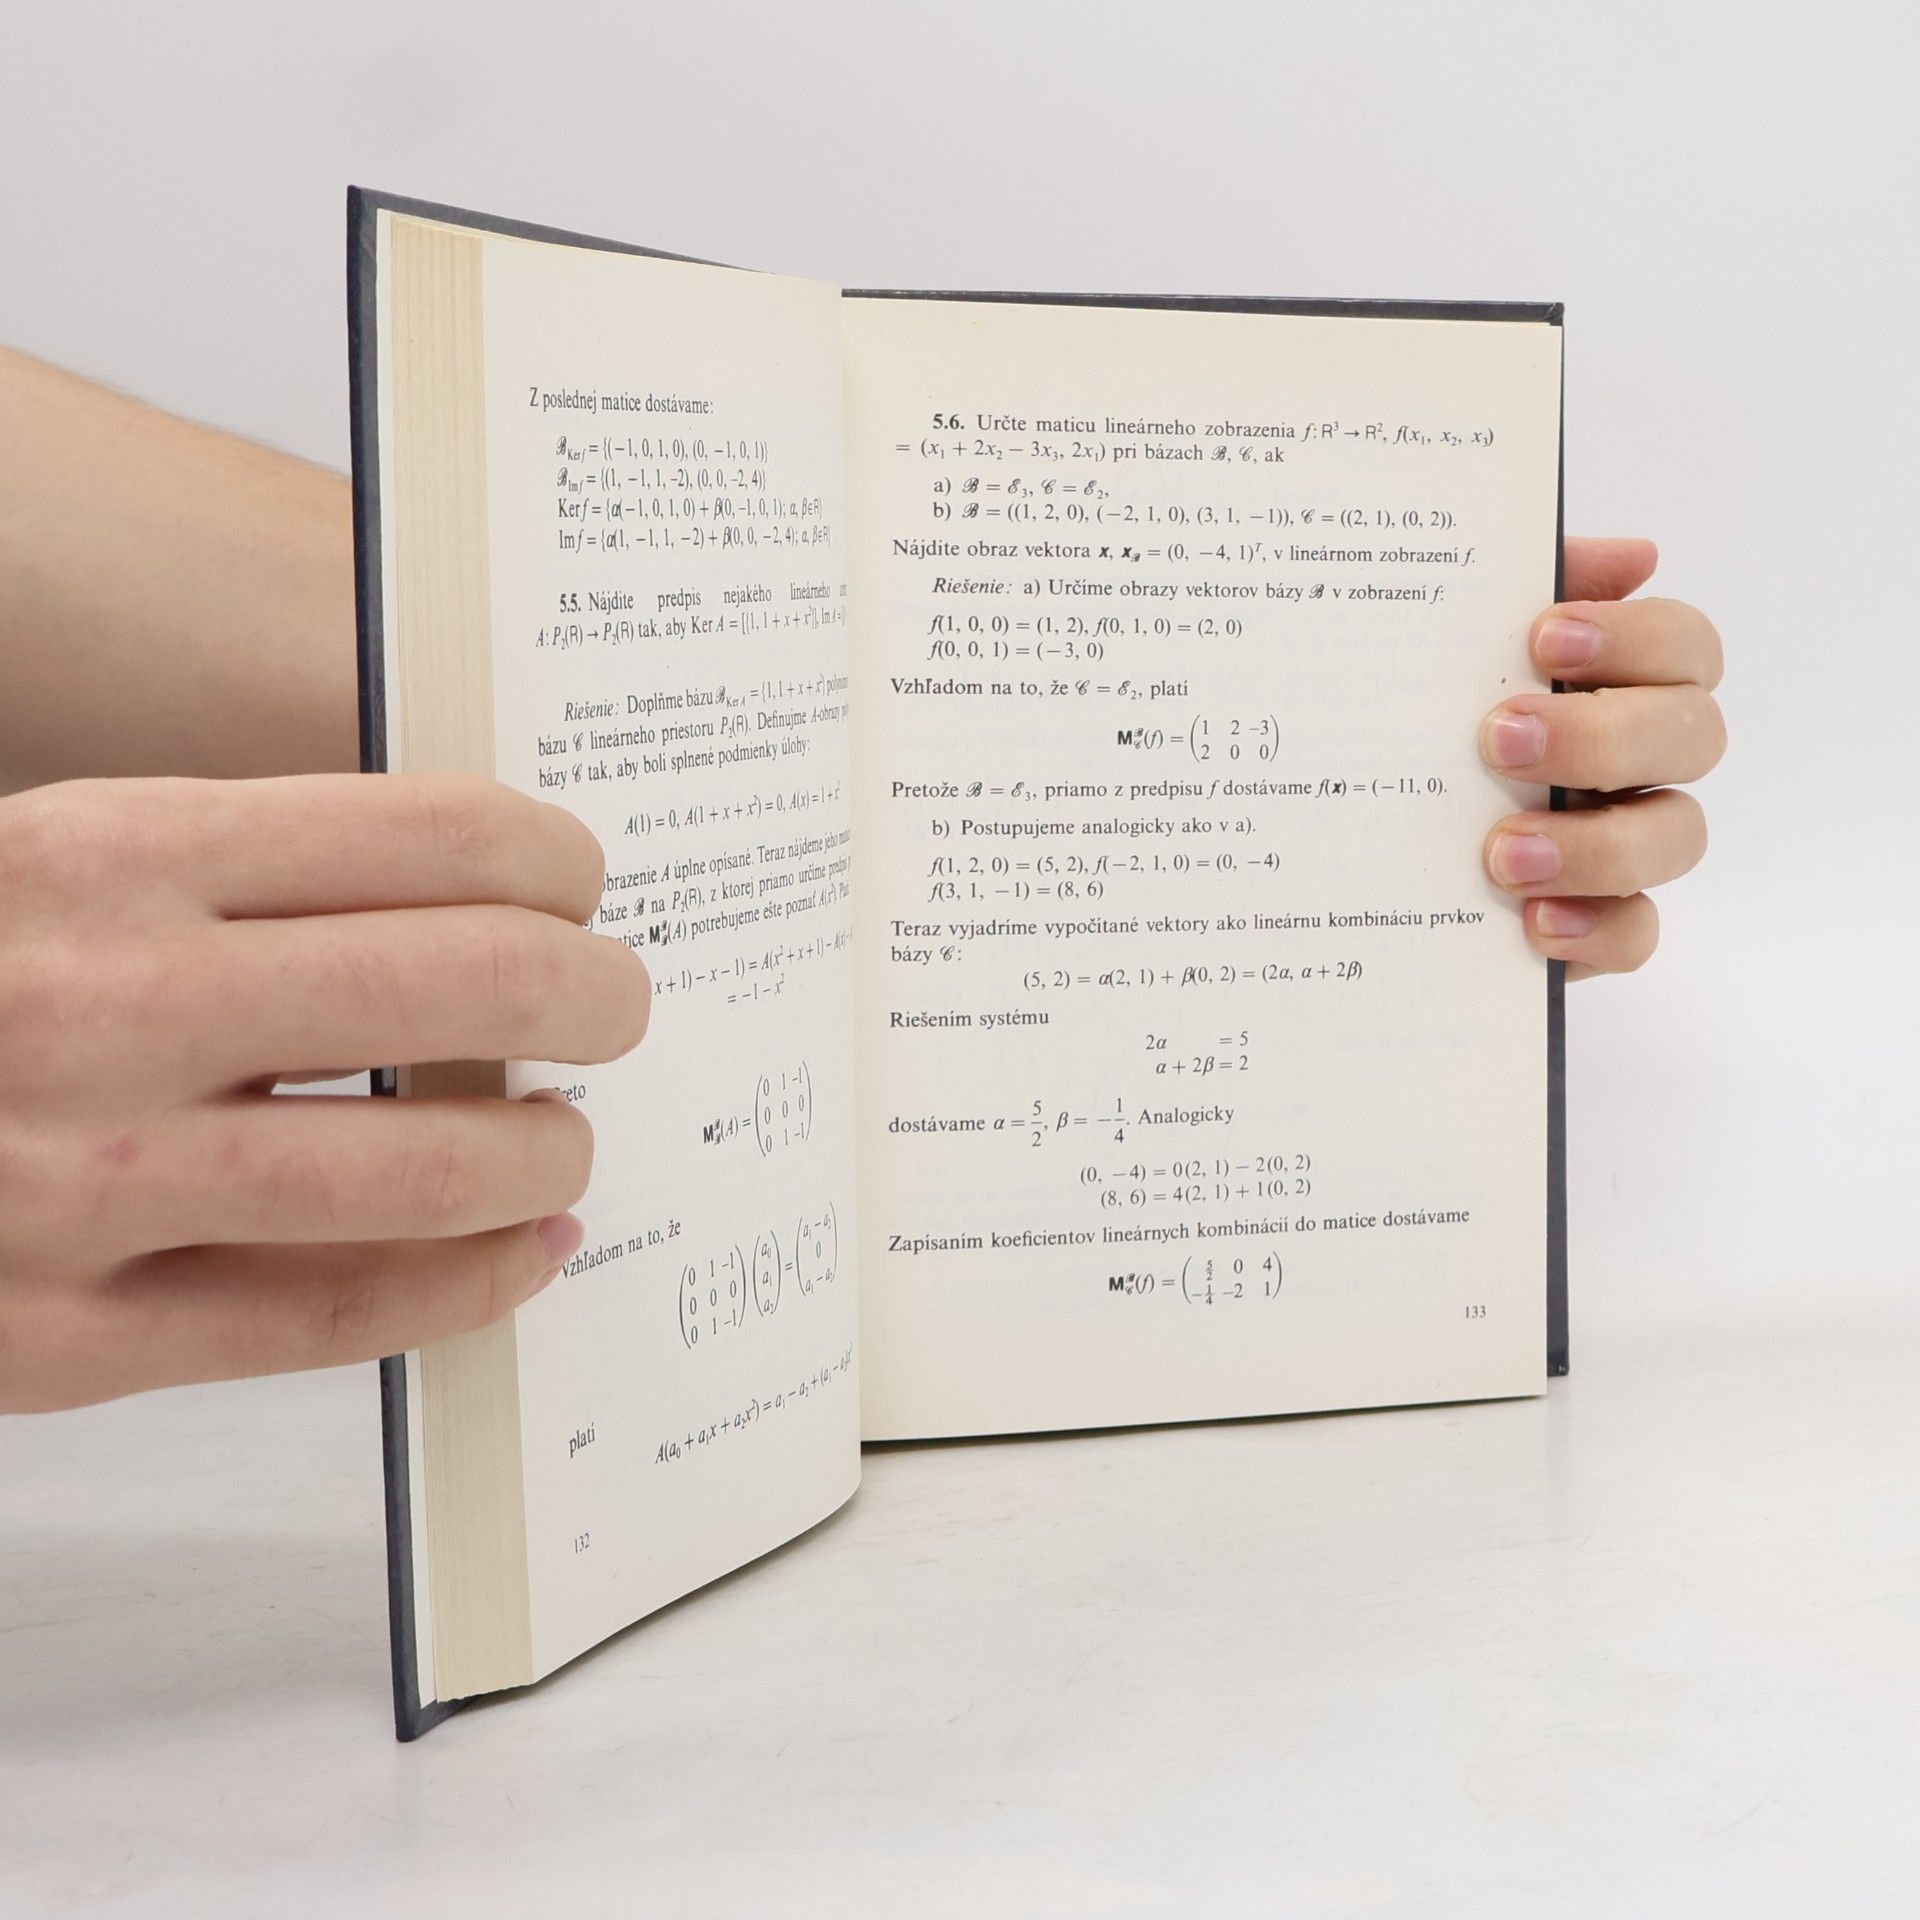 Z poslednej matice dostávame:
ℬ_Ker f = {(−1, 0, 1, 0), (0, −1, 0, 1)}
ℬ_Im f = {(1, −1, 1, −2), (0, 0, −2, 4)}
Ker f = {α(−1, 0, 1, 0) + β(0, −1, 0, 1); α, β∈R}
Im f = {α(1, −1, 1, −2) + β(0, 0, −2, 4); α, β∈R}
5.5. Nájdite predpis nejakého lineárneho
A: P₂(R) → P₂(R) tak, aby Ker A = [{1, 1 + x + x²}], Im A =
Riešenie: Doplňme bázu ℬ_Ker A = {1, 1 + x + x²}
bázu 𝒞 lineárneho priestoru P₂(R). Definujme A-obrazy
bázy 𝒞 tak, aby boli splnené podmienky úlohy:
A(1) = 0, A(1 + x + x²) = 0, A(x) = 1 + x²
A úplne opísané. Teraz nájdeme jeho
báze ℬ na P₂(R), z ktorej priamo určíme predpis
M_ℬ^ℬ(A) potrebujeme ešte poznať A(x²).
x + 1) − x − 1) = A(x² + x + 1) − A(x) −
= −1 − x²
M_ℬ^ℬ(A) = (0 1 −1
0 0 0
0 1 −1)
Vzhľadom na to, že
(0 1 −1
0 0 0
0 1 −1) (a₀
a₁
a₂) = (a₁ − a₂
0
a₁ − a₂)
platí
A(a₀ + a₁x + a₂x²) = a₁ − a₂ + (a₁ − a₂)x²
132
5.6. Určte maticu lineárneho zobrazenia f: R³ → R², f(x₁, x₂, x₃)
= (x₁ + 2x₂ − 3x₃, 2x₁) pri bázach ℬ, 𝒞, ak
a) ℬ = ℰ₃, 𝒞 = ℰ₂,
b) ℬ = ((1, 2, 0), (−2, 1, 0), (3, 1, −1)), 𝒞 = ((2, 1), (0, 2)).
Nájdite obraz vektora x, x_ℬ = (0, −4, 1)ᵀ, v lineárnom zobrazení f.
Riešenie: a) Určíme obrazy vektorov bázy ℬ v zobrazení f:
f(1, 0, 0) = (1, 2), f(0, 1, 0) = (2, 0)
f(0, 0, 1) = (−3, 0)
Vzhľadom na to, že 𝒞 = ℰ₂, platí
M_𝒞^ℬ(f) = (1 2 −3
2 0 0)
Pretože ℬ = ℰ₃, priamo z predpisu f dostávame f(x) = (−11, 0).
b) Postupujeme analogicky ako v a).
f(1, 2, 0) = (5, 2), f(−2, 1, 0) = (0, −4)
f(3, 1, −1) = (8, 6)
Teraz vyjadríme vypočítané vektory ako lineárnu kombináciu prvkov
bázy 𝒞:
(5, 2) = α(2, 1) + β(0, 2) = (2α, α + 2β)
Riešením systému
2α = 5
α + 2β = 2
dostávame α = 5/2, β = −1/4. Analogicky
(0, −4) = 0(2, 1) − 2(0, 2)
(8, 6) = 4(2, 1) + 1(0, 2)
Zapísaním koeficientov lineárnych kombinácií do matice dostávame
M_𝒞^ℬ(f) = (5/2 0 4
−1/4 −2 1)
133